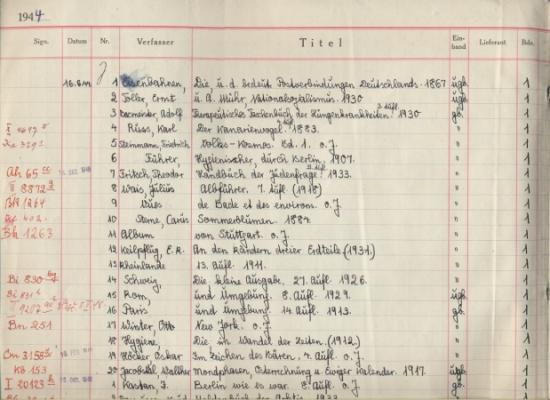 1944
Sign. Datum Nr. Verfasser Titel Ein-band Lieferant Bde.
16.8.44 1 Eisenbahnen, Die u. d. bedeut. Postverbindungen Deutschlands. 1867 ugb. 1
2 Toller, Ernst u. A. Mühr, Nationalsozialismus. 1930 ugb. 1
3 Bacmeister, Adolf Therapeutisches Taschenbuch der Lungenkrankheiten. 3. Aufl. 1930 gb. 1
4 Russ, Karl Der Kanarienvogel. 1883. " 1
5 Steinmann, Friedrich Volks-Kosmos. Bd. 1. o. J. " 1
6 Führer, Hygienischer, durch Berlin. 1907. " 1
Ah 65 7 Fritsch, Theodor Handbuch der Judenfrage. 1933. " 1
II 8872 8 Wais, Julius Albführer. 7. Aufl. (1918) " 1
Bh 1264 9 de Bade et des environs. o. J. " 1
402 10 Sterne, Carus Sommerblumen. 1884. " 1
Bh 1263 11 Album von Stuttgart. o. J. " 1
12 Keilpflug, E. R. An den Rändern dreier Erdteile. (1931.) " 1
13 Rheinlande 13. Aufl. 1911. " 1
Bi 830 14 Schweiz, Die kleine Ausgabe. 27. Aufl. 1926. " 1
Bi 831 15 Rom, und Umgebung. 8. Aufl. 1929. ugb. 1
16 Paris und Umgebung. 14. Aufl. 1913. gb. 1
Bm 251 17 Winter, Otto New York. o. J. " 1
18 Hygiene, Die im Wandel der Zeiten. (1912.) " 1
Cm 3158 19 Höcker, Oskar Im Zeichen des Bären. 4. Aufl. o. J. " 1
Kb 153 20 Jacobsthal, Walther Mondphasen, Osterrechnung u. Ewiger Kalender. 1917. ugb. 1
I 20123 1 Kastan, I. Berlin wie es war. 8. Aufl. o. J. gb. 1